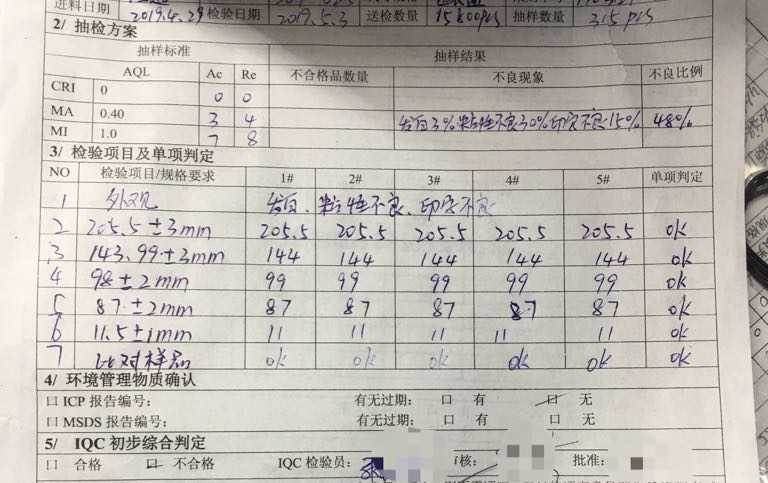 进料日期 2019.4.29 检验日期 2019.5.3 送检数量 15800pcs 抽样数量 315pcs
2/ 抽检方案
抽样标准 抽样结果
AQL Ac Re 不合格品数量 不良现象 不良比例
CRI 0 0 0
MA 0.40 3 4 发白3%粘性不良30%印字不良15% 48%
MI 1.0 7 8
3/ 检验项目及单项判定
NO 检验项目/规格要求 1# 2# 3# 4# 5# 单项判定
1 外观 发白、粘性不良、印字不良
2 205.5±3mm 205.5 205.5 205.5 205.5 205.5 ok
3 143.99±3mm 144 144 144 144 144 ok
4 98±2mm 99 99 99 99 99 ok
5 87±2mm 87 87 87 87 87 ok
6 11.5±1mm 11 11 11 11 11 ok
7 比对样品 ok ok ok ok ok ok
4/ 环境管理物质确认
口 ICP 报告编号: 有无过期: 口 有 口 无
口 MSDS 报告编号: 有无过期: 口 有 口 无
5/ IQC 初步综合判定
口 合格 口 不合格 IQC 检验员: 核: 批准: